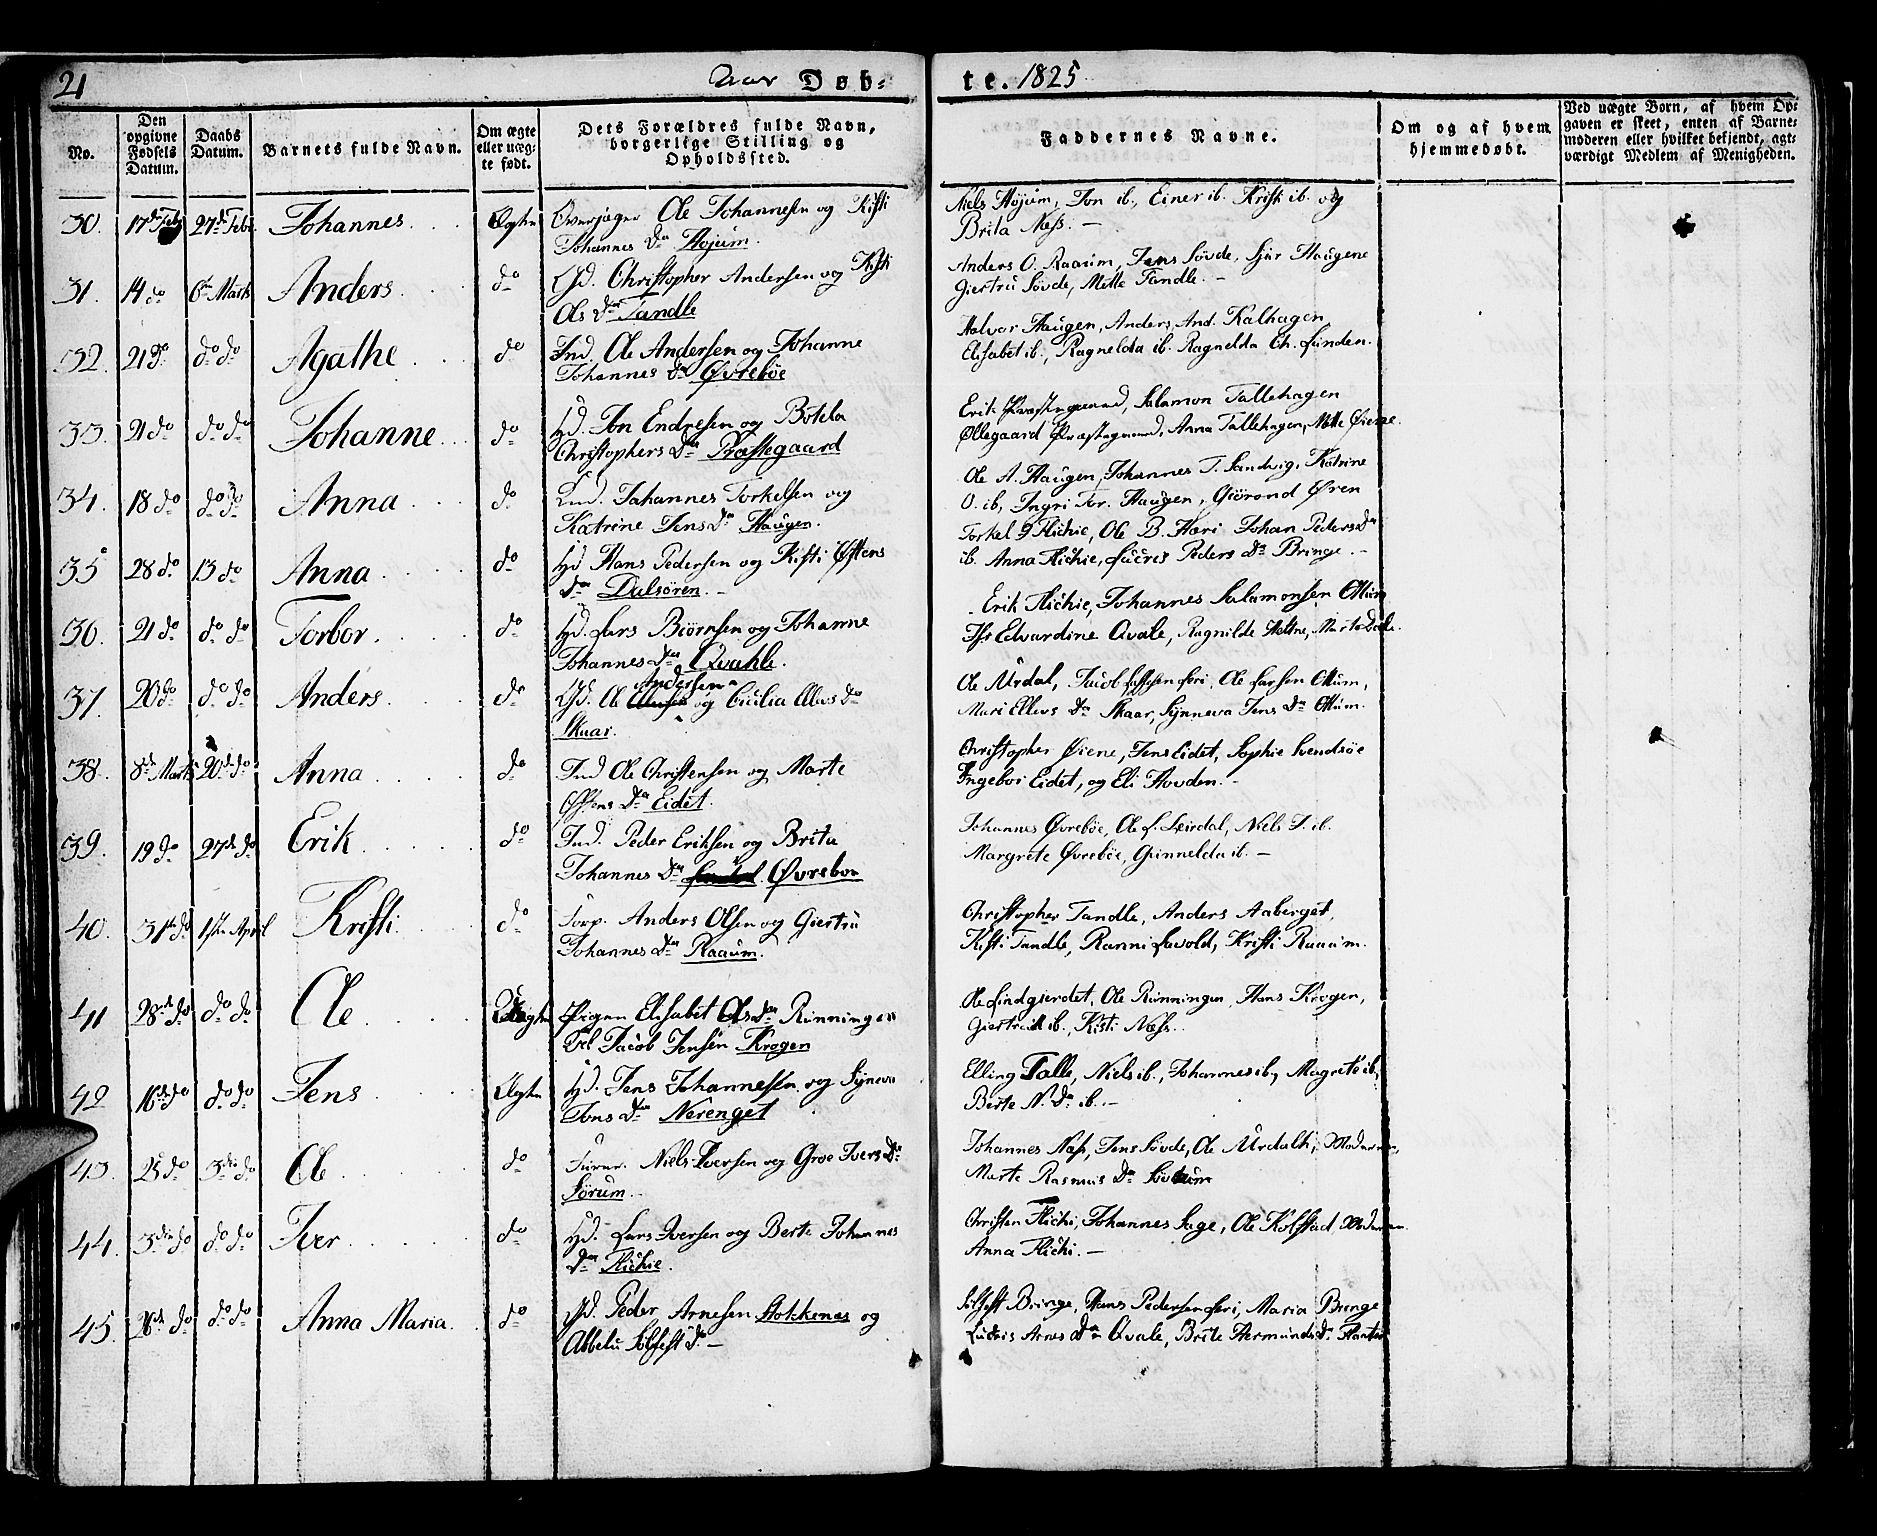 21
Aar Døbte. 1825
No.
Den opgivne Fødsels Datum.
Daabs Datum.
Barnets fulde Navn.
Om ægte eller uægte født.
Dets Forældres fulde Navn, borgerlige Stilling og Opholdssted.
Faddernes Navne.
Om og af hvem hjemmedøbt.
Ved uægte Børn, af hvem Opgaven er skeet, enten af Barnemoderen eller hvilket bekjendt, agtværdigt Medlem af Menigheden.
30. 17de Feb 27de Feb. Johannes. Ægte Ole Johannesen og Kisti
Johannes Dr Højum.
Niels Højum, Jon ib., Einer ib. Kristi ib. og
Brita Næss. —
31. 14 do 6te Marts Anders. do Christopher Andersen og Kisti
Ols Dr Tandle
Anders O. Raaum, Jens Søvde, Sjur Haugene
Giertru Søvde, Mette Tandle. —
32. 21 do do do Agathe. do Ind. Ole Andersen og Johanne
Johannes Dr Øvrebøe
Halvor Haugen, Anders And. Kalhagen,
Elisabet ib., Ragnelda ib. Ragnelda Ch. Linden.
33. 21 do do do Johanne. do Hd. Jon Endresen og Botela
Christophers Dr Præstegaard
Erik Præstegaard, Salamon Tallehagen
Øllegaard Præstegaard, Anna Tallehagen, Mette Øiene.
34. 18 do do do Anna do Ind. Johannes Torkelsen og
Katrine Jens Dr Haugen.
Ole A. Haugen, Johannes T. Sandvig, Katrine
O. ib, Ingri Tor. Haugen, Giørond Øren
35 28 do 13 do Anna do Hd Hans Pedersen og Kisti Østens
Dr Dalsøren. —
Torkel Flichie, Ole B. Hæri Johan Peders Dr
ib. Anna Flichie, Peders Dr Bringe. —
36. 21 do do do Torbor. do Hd. Lars Biörnsen og Johanne
Johannes Dr Qvahle.
Erik Flichie, Johannes Salamonsen Ottum
Jfr Edwardine Qvale, Ragnilde Heltne, Marte
37. 20 do do do Anders. do Hd. Ole Andersen og Cicilia Ellevs Dr
Skaar.
Ole Urdal, Jacob Lassesen Leri, Ole Larsen Ottum,
Mari Ellevs Dr Skaar, Synneva Jens Dr Ottum.
38. 8de Marts 20de do Anna do Ind Ole Christensen og Marte
Østens Dr Eidet.
Christopher Øiene, Jens Eidet, Sophie Svendsøe
Ingebor Eidet, og Eli Hovden. —
39. 19 do 27de do Erik do Ind. Peder Eriksen og Brita
Johannes Dr Øvrebøe
Johannes Øvrebøe, Ole L. Leirdal, Niels J. ib.
Margrete Øvrebøe, Gunnelda ib. —
40. 31te do 1ste April Kristi. do Anders Olsen og Giertru
Johannes Dr Raaum.
Christopher Tandle, Anders Aaberget,
Kisti Tandle, Ranni Lavold, Kristi Raaum.
41 28de do do do Ole Uægte Pigen Elisabet Ols Dr Rønningen
Jacob Jensen Krogen
Ole Lindgierdet, Ole Rønningen, Hans Krogen,
Giertru ib., Kisti Næss.
42 16de do do do Jens Ægte Hd. Jens Johannesen og Syneva
Jons Dr Nerenget
Elling Talle, Niels ib., Johannes ib, Magrete ib,
Berte N. Dr ib. —
43. 25 do 3die do Ole do Niels Iversen og Groe Ivers Dr
Sørum. —
Johannes Næss, Jens Søvde, Ole Urdahl,
Marte Rasmus Dr
44. 3die do do do Iver do Hd. Lars Iversen og Berte Johannes
Dr Flichie.
Christen Flichi, Johannes Sage, Ole Kolstad,
Anna Flichi. —
45. 26de do do do Anna Maria. do Hd. Peder Arnesen Stokkenes og
Abbelu Solfest Dr —
Solfest Bringe, Hans Pedersen Leri, Maria Bringe
Arnes Dr Qvale, Brite Hermunds Dr